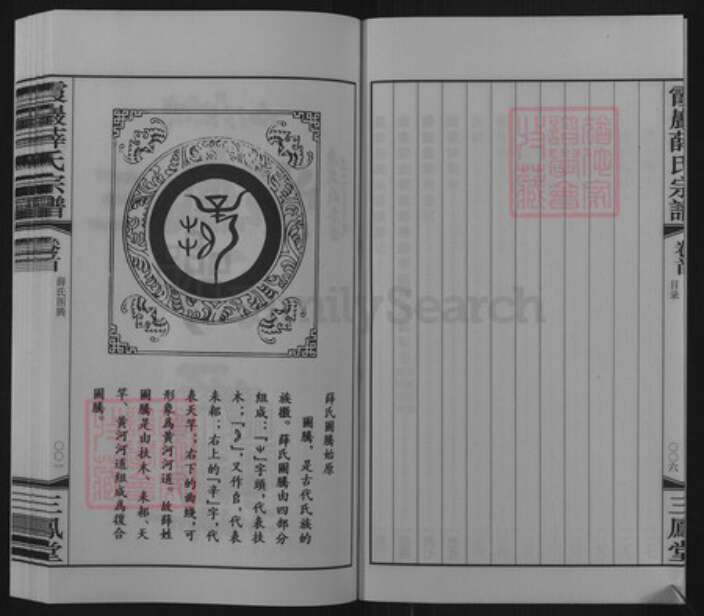 霞巖薛氏宗譜
卷首
目录
〇〇六
三鳳堂
薛氏圖騰始原
圖騰，是古代氏族的
族徽。薛氏圖騰由四部分
組成：『屮』字頭，代表扶
木；『𠂤』，又作㠯，代表
耒耜；右上的『辛』字，代
表天竿；右下的曲线，可
形象爲黄河河道。故薛姓
圖騰是由扶木、耒耜、天
竿、黄河河道組成爲復合
圖騰。
霞巖薛氏宗譜
卷首
薛氏图腾
〇〇一
三鳳堂
FamilySearch